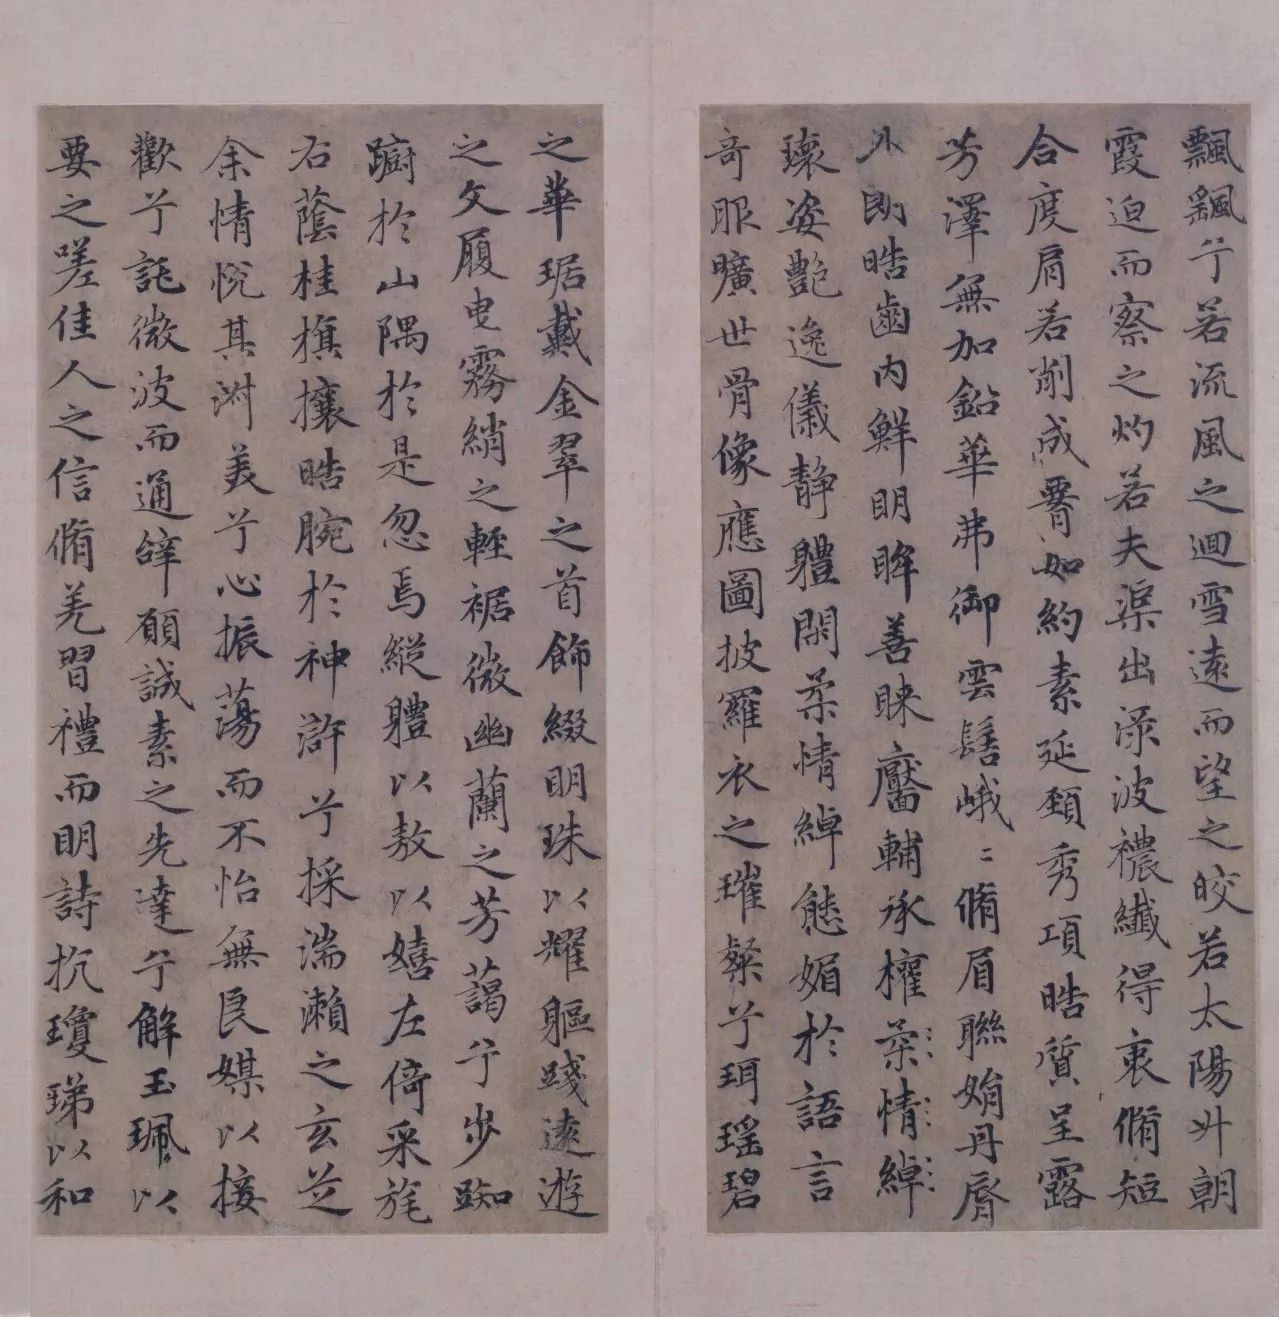 飄颻兮若流風之迴雪遠而望之皎若太陽升朝
霞迫而察之灼若夫渠出渌波禯纖得衷脩短
合度肩若削成䙅如約素延頸秀項皓質呈露
芳澤無加鉛華弗御雲髻峨〻脩眉聯娟丹脣
外朗皓齒内鮮眀眸善睞靨輔承權柔情綽
瓌姿艷逸儀静軆閑柔情綽態媚於語言
竒服曠世骨像應圖披羅衣之璀粲兮珥瑶碧
之華琚戴金翠之首飾綴眀珠以耀軀踐遠遊
之文履曳霧綃之輕裾微幽蘭之芳藹兮步踟
躕於山隅於是忽焉縱軆以敖以嬉左倚采旄
右蔭桂旗攘皓腕於神滸兮採湍瀨之玄芝
余情悅其淑美兮心振蕩而不怡無良媒以接
歡兮託微波而通辭願誠素之先達兮解玉珮以
要之嗟佳人之信脩羌習禮而眀詩抗瓊珶以和